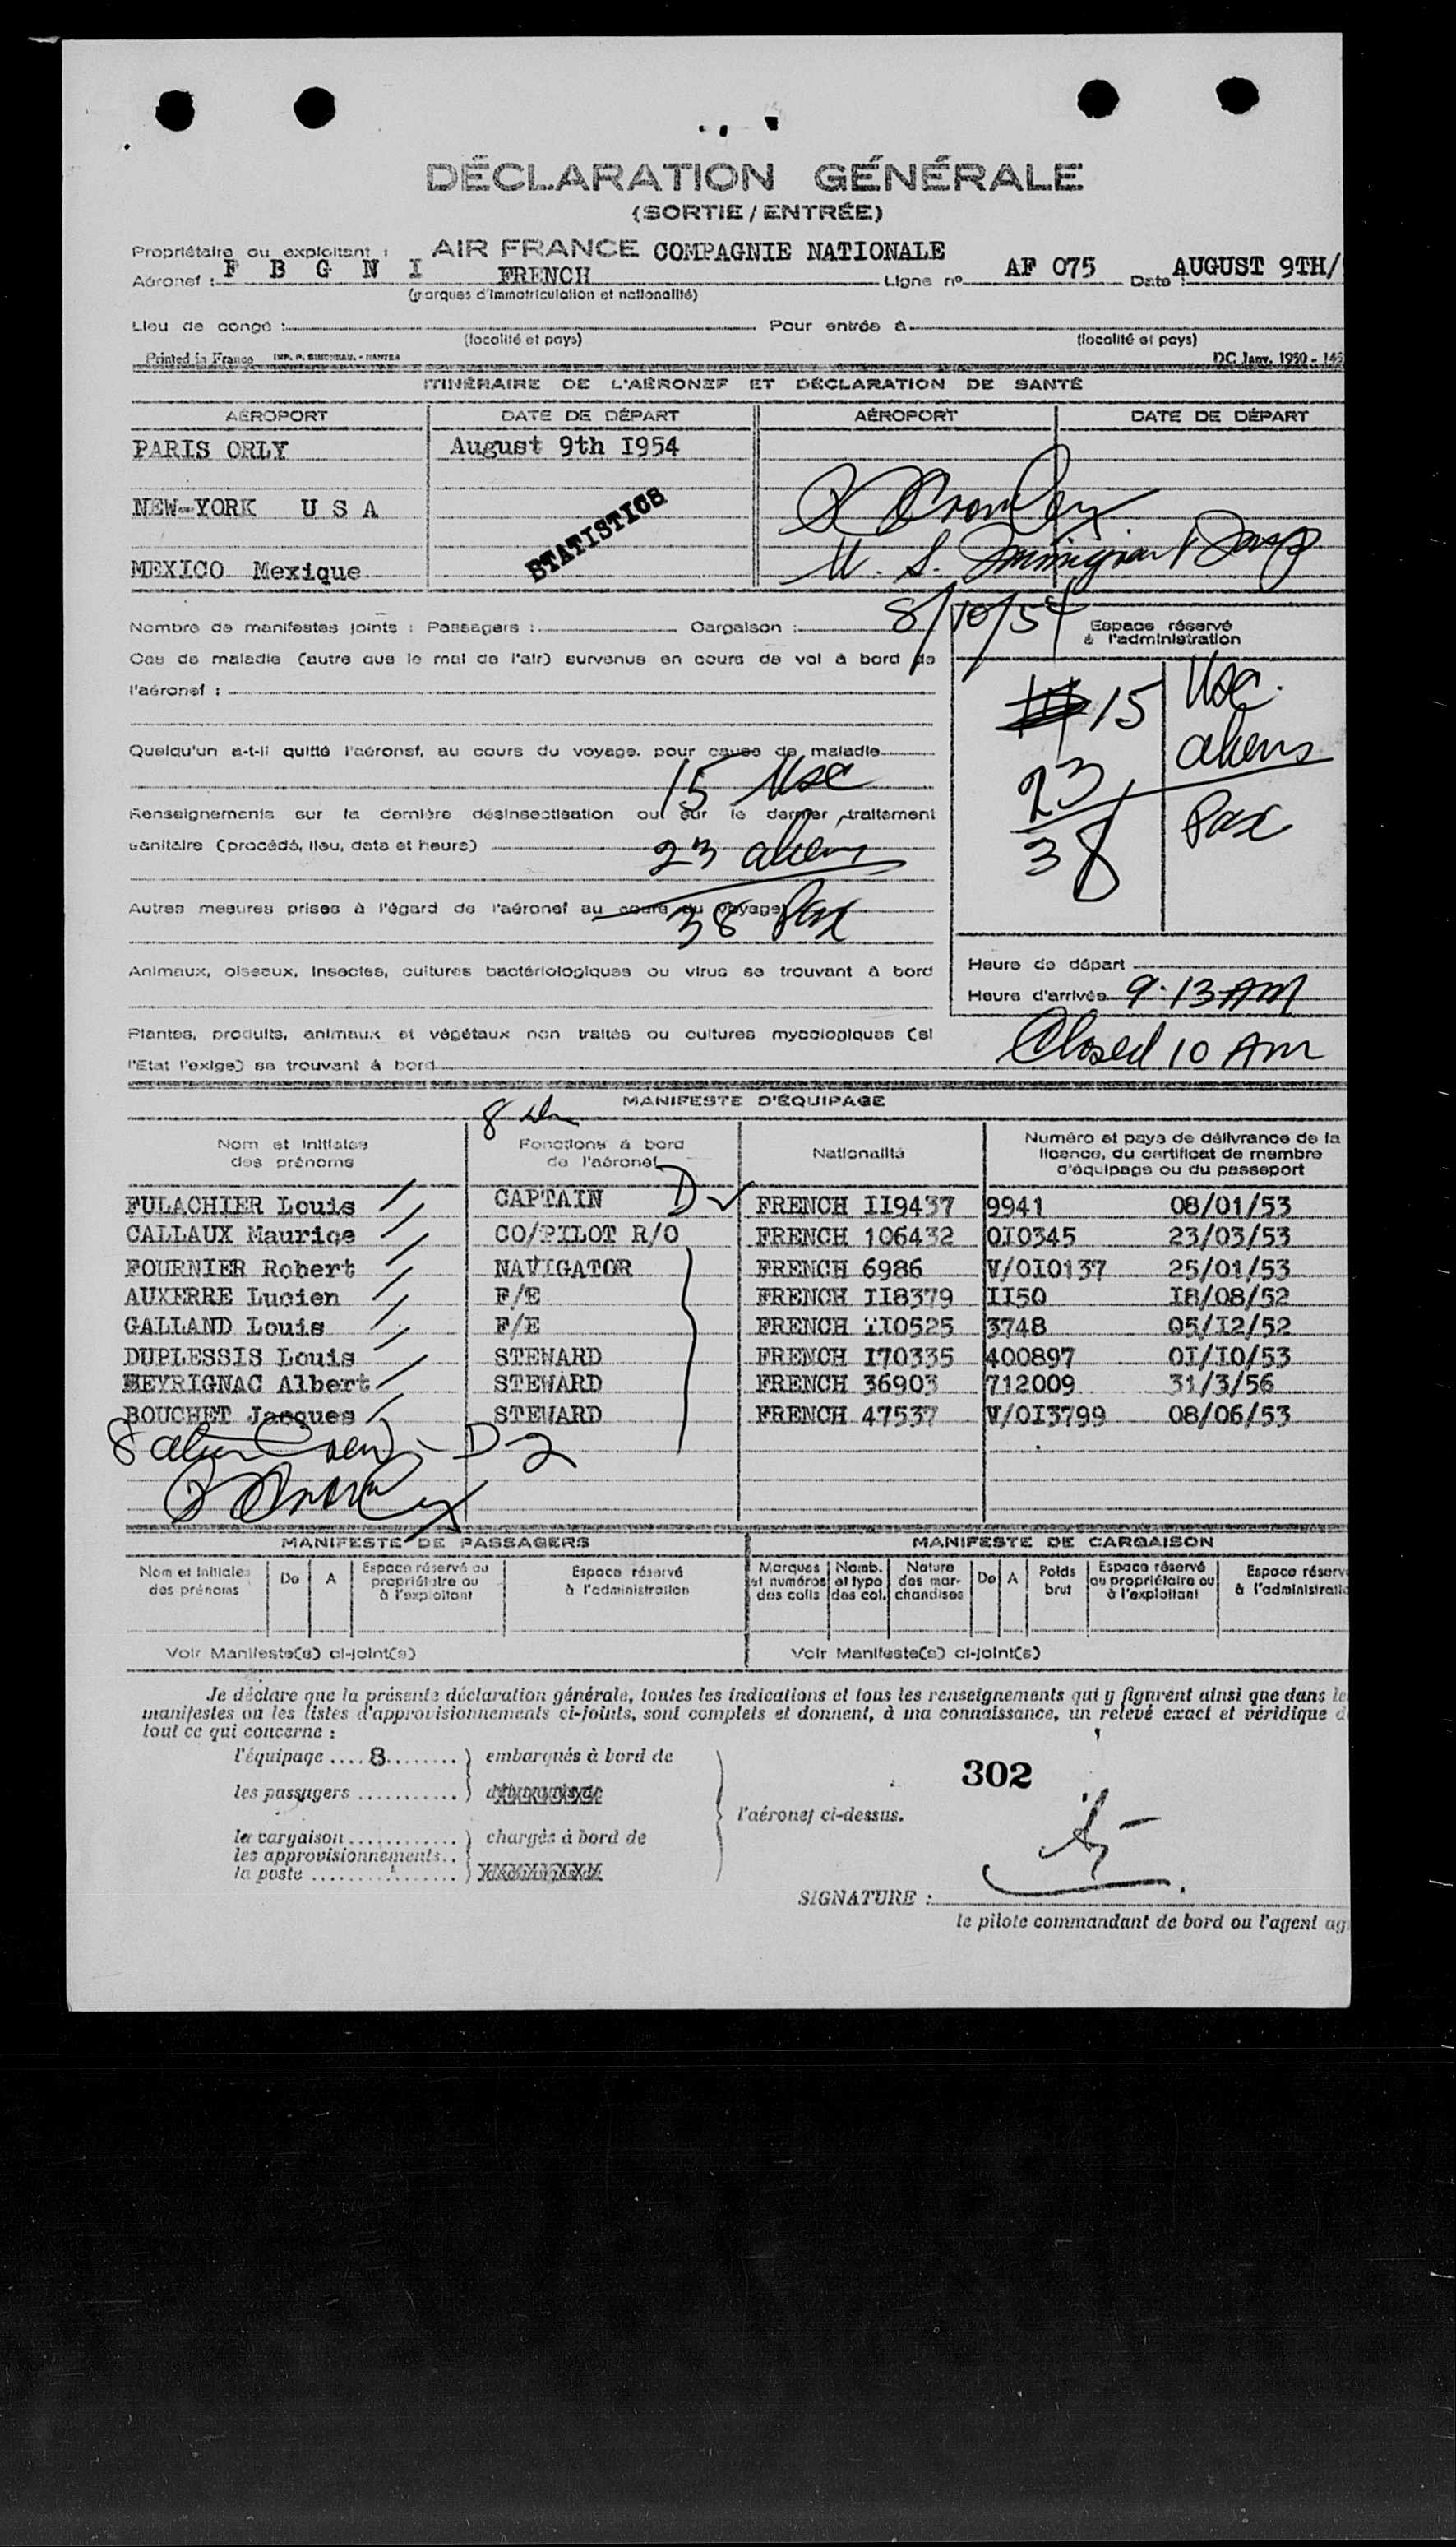 DÉCLARATION GÉNÉRALE
(SORTIE / ENTRÉE)
Propriétaire ou exploitant : AIR FRANCE COMPAGNIE NATIONALE
Aéronef : F B G N I FRENCH Ligne nº AF 075 Date : AUGUST 9TH/
(marques d'immatriculation et nationalité)
Lieu de congé : Pour entrée à
(localité et pays) (localité et pays)
Printed in France IMP. P. SIMONEAU. - NANTES DC Janv. 1950 - 145
ITINÉRAIRE DE L'AÉRONEF ET DÉCLARATION DE SANTÉ
AÉROPORT DATE DE DÉPART AÉROPORT DATE DE DÉPART
PARIS ORLY August 9th I954
NEW-YORK U S A
STATISTICS
U. S.
MEXICO Mexique
8/10/54
Nombre de manifestes joints : Passagers : Cargaison :
Espace réservé
à l'administration
Cas de maladie (autre que le mal de l'air) survenus en cours de vol à bord de
l'aéronef :
15 Usc.
23 aliens
38 Pax
Quelqu'un a-t-il quitté l'aéronef, au cours du voyage, pour cause de maladie
15 Usc
Renseignements sur la dernière désinsectisation ou sur le dernier traitement
sanitaire (procédé, lieu, date et heure)
23 aliens
Autres mesures prises à l'égard de l'aéronef au cours du voyage
38 Pax
Animaux, oiseaux, insectes, cultures bactériologiques ou virus se trouvant à bord
Heure de départ
Heure d'arrivée 9.13 AM
Closed 10 AM
Plantes, produits, animaux et végétaux non traités ou cultures mycologiques (si
l'Etat l'exige) se trouvant à bord
MANIFESTE D'ÉQUIPAGE
8
Nom et initiales
des prénoms
Fonctions à bord
de l'aéronef
Nationalité
Numéro et pays de délivrance de la
licence, du certificat de membre
d'équipage ou du passeport
FULACHIER Louis CAPTAIN D FRENCH II9437 9941 08/01/53
CALLAUX Maurice CO/PILOT R/O FRENCH 106432 0I0345 23/03/53
FOURNIER Robert NAVIGATOR FRENCH 6986 V/0I0137 25/01/53
AUXERRE Lucien F/E FRENCH II8379 II50 I8/08/52
GALLAND Louis F/E FRENCH II0525 3748 05/I2/52
DUPLESSIS Louis STEWARD FRENCH I70335 400897 0I/I0/53
MEYRIGNAC Albert STEWARD FRENCH 36903 712009 31/3/56
BOUCHET Jacques STEWARD FRENCH 47537 V/0I3799 08/06/53
8 alien Crew - D-2
MANIFESTE DE PASSAGERS
MANIFESTE DE CARGAISON
Nom et initiales
des prénoms
De
A
Espace réservé au
propriétaire ou
à l'exploitant
Espace réservé
à l'administration
Marques
et numéros
des colis
Nomb.
et type
des col.
Nature
des mar-
chandises
De
A
Poids
brut
Espace réservé
au propriétaire ou
à l'exploitant
Espace réserv
à l'administratio
Voir Manifeste(s) ci-joint(s)
Voir Manifeste(s) ci-joint(s)
Je déclare que la présente déclaration générale, toutes les indications et tous les renseignements qui y figurent ainsi que dans le
manifestes ou les listes d'approvisionnements ci-joints, sont complets et donnent, à ma connaissance, un relevé exact et véridique d
tout ce qui concerne :
l'équipage .... 8 ........ ) embarqués à bord de
les passagers ........... )
302
l'aéronef ci-dessus.
la cargaison ............ ) chargés à bord de
les approvisionnements..
la poste ................ )
SIGNATURE :
le pilote commandant de bord ou l'agent ag